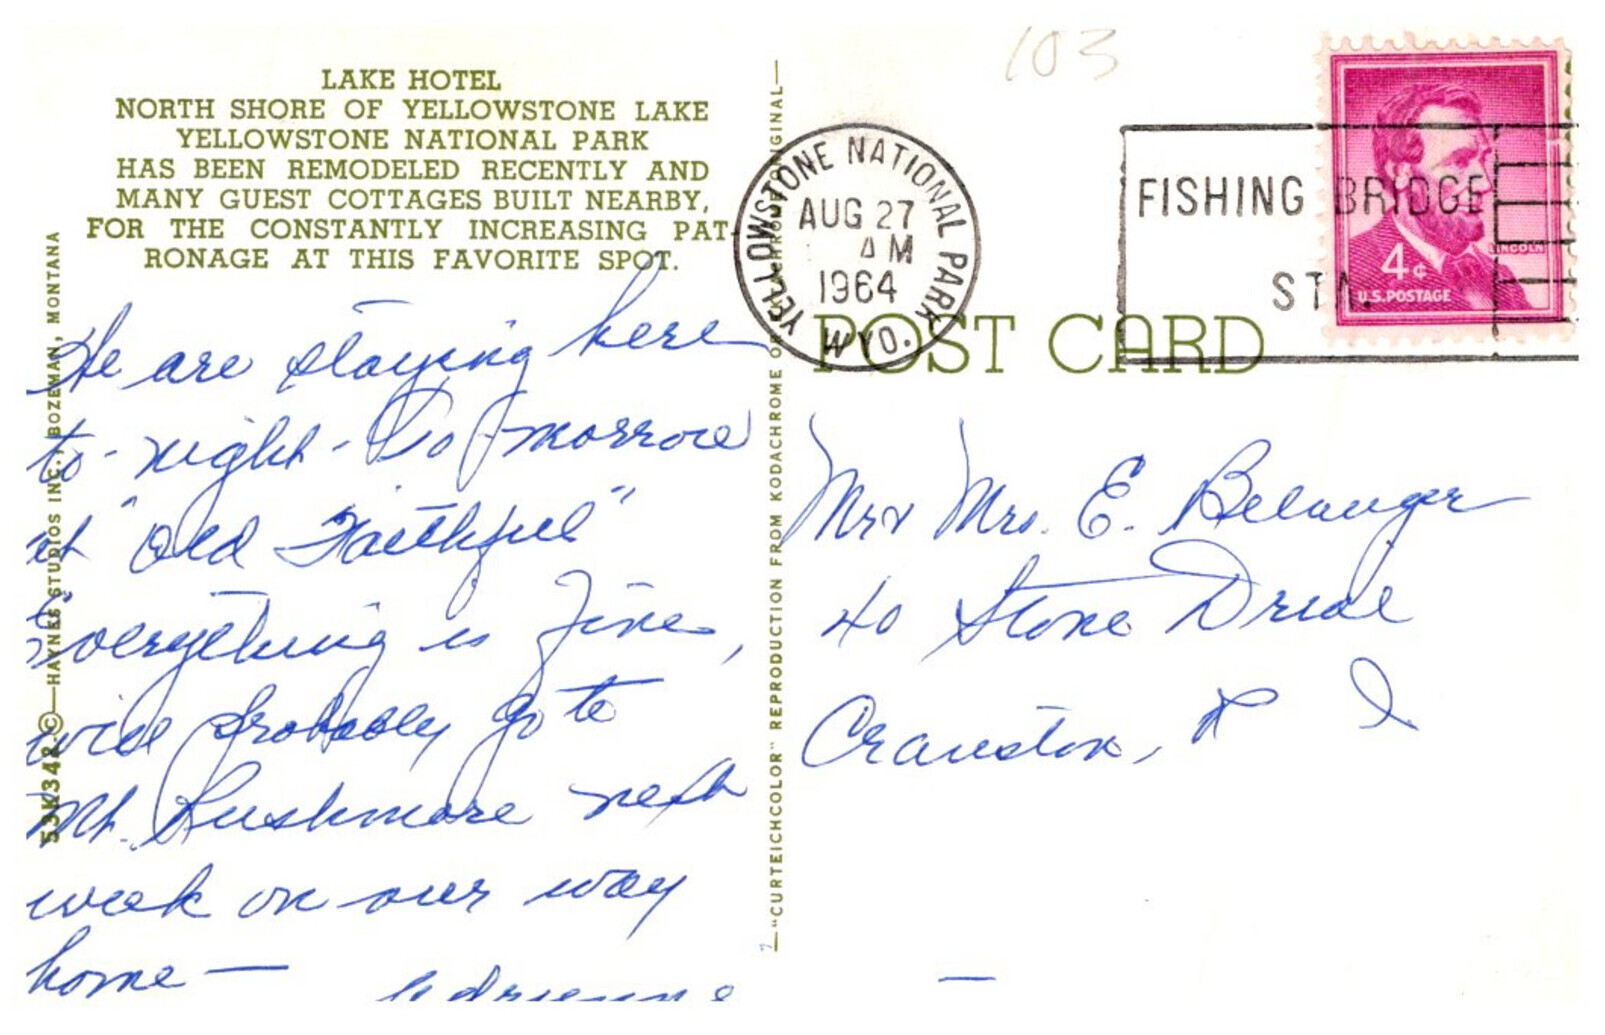 LAKE HOTEL
NORTH SHORE OF YELLOWSTONE LAKE
YELLOWSTONE NATIONAL PARK
HAS BEEN REMODELED RECENTLY AND
MANY GUEST COTTAGES BUILT NEARBY,
FOR THE CONSTANTLY INCREASING PAT-
RONAGE AT THIS FAVORITE SPOT.
We are staying here
to-night - To morrow
at "Old Faithful"
Everything is fine,
will probably go to
Mt. Rushmore next
week on our way
home —
Adrienne
53K342-©—HAYNES STUDIOS INC., BOZEMAN, MONTANA
—"CURTEICHCOLOR" REPRODUCTION FROM KODACHROME OR EKTACHROME ORIGINAL—
103
YELLOWSTONE NATIONAL PARK
AUG 27
AM
1964
WYO.
FISHING BRIDGE
STA.
LINCOLN
4¢
U.S. POSTAGE
POST CARD
Mr & Mrs. E. Belanger
40 Stone Drive
Cranston, R I